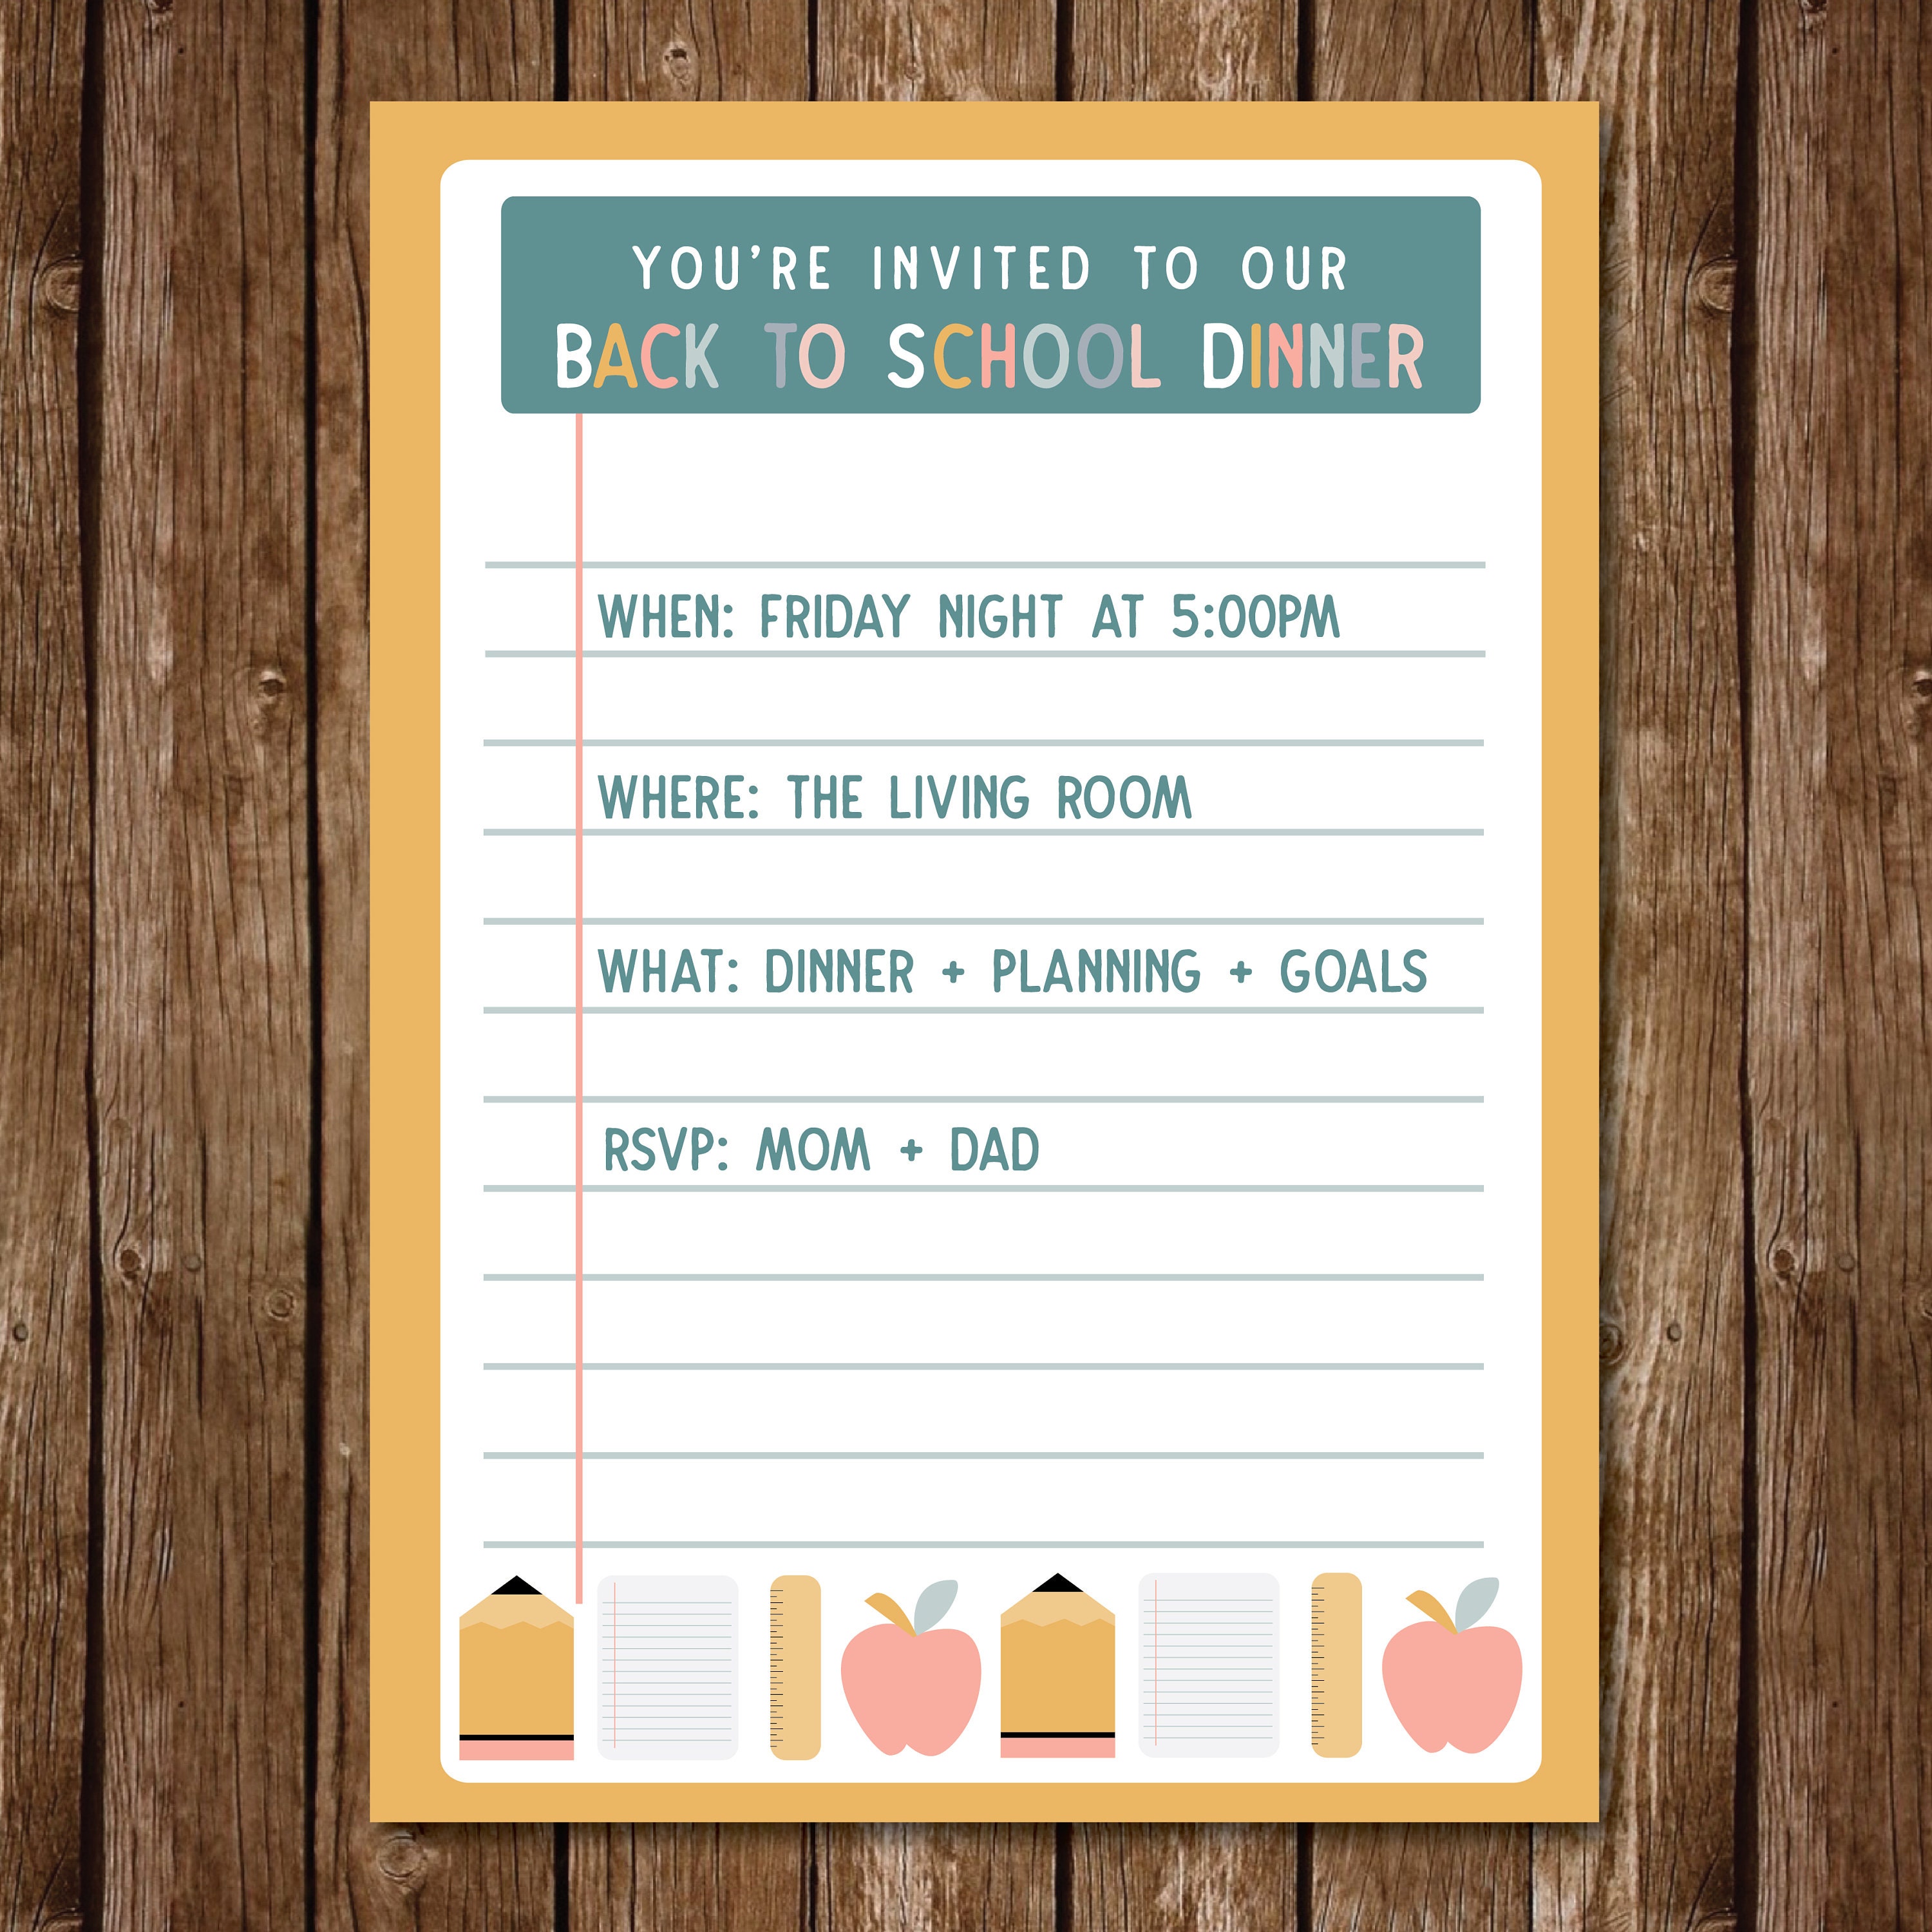 YOU'RE INVITED TO OUR
BACK TO SCHOOL DINNER
WHEN: FRIDAY NIGHT AT 5:00PM
WHERE: THE LIVING ROOM
WHAT: DINNER + PLANNING + GOALS
RSVP: MOM + DAD